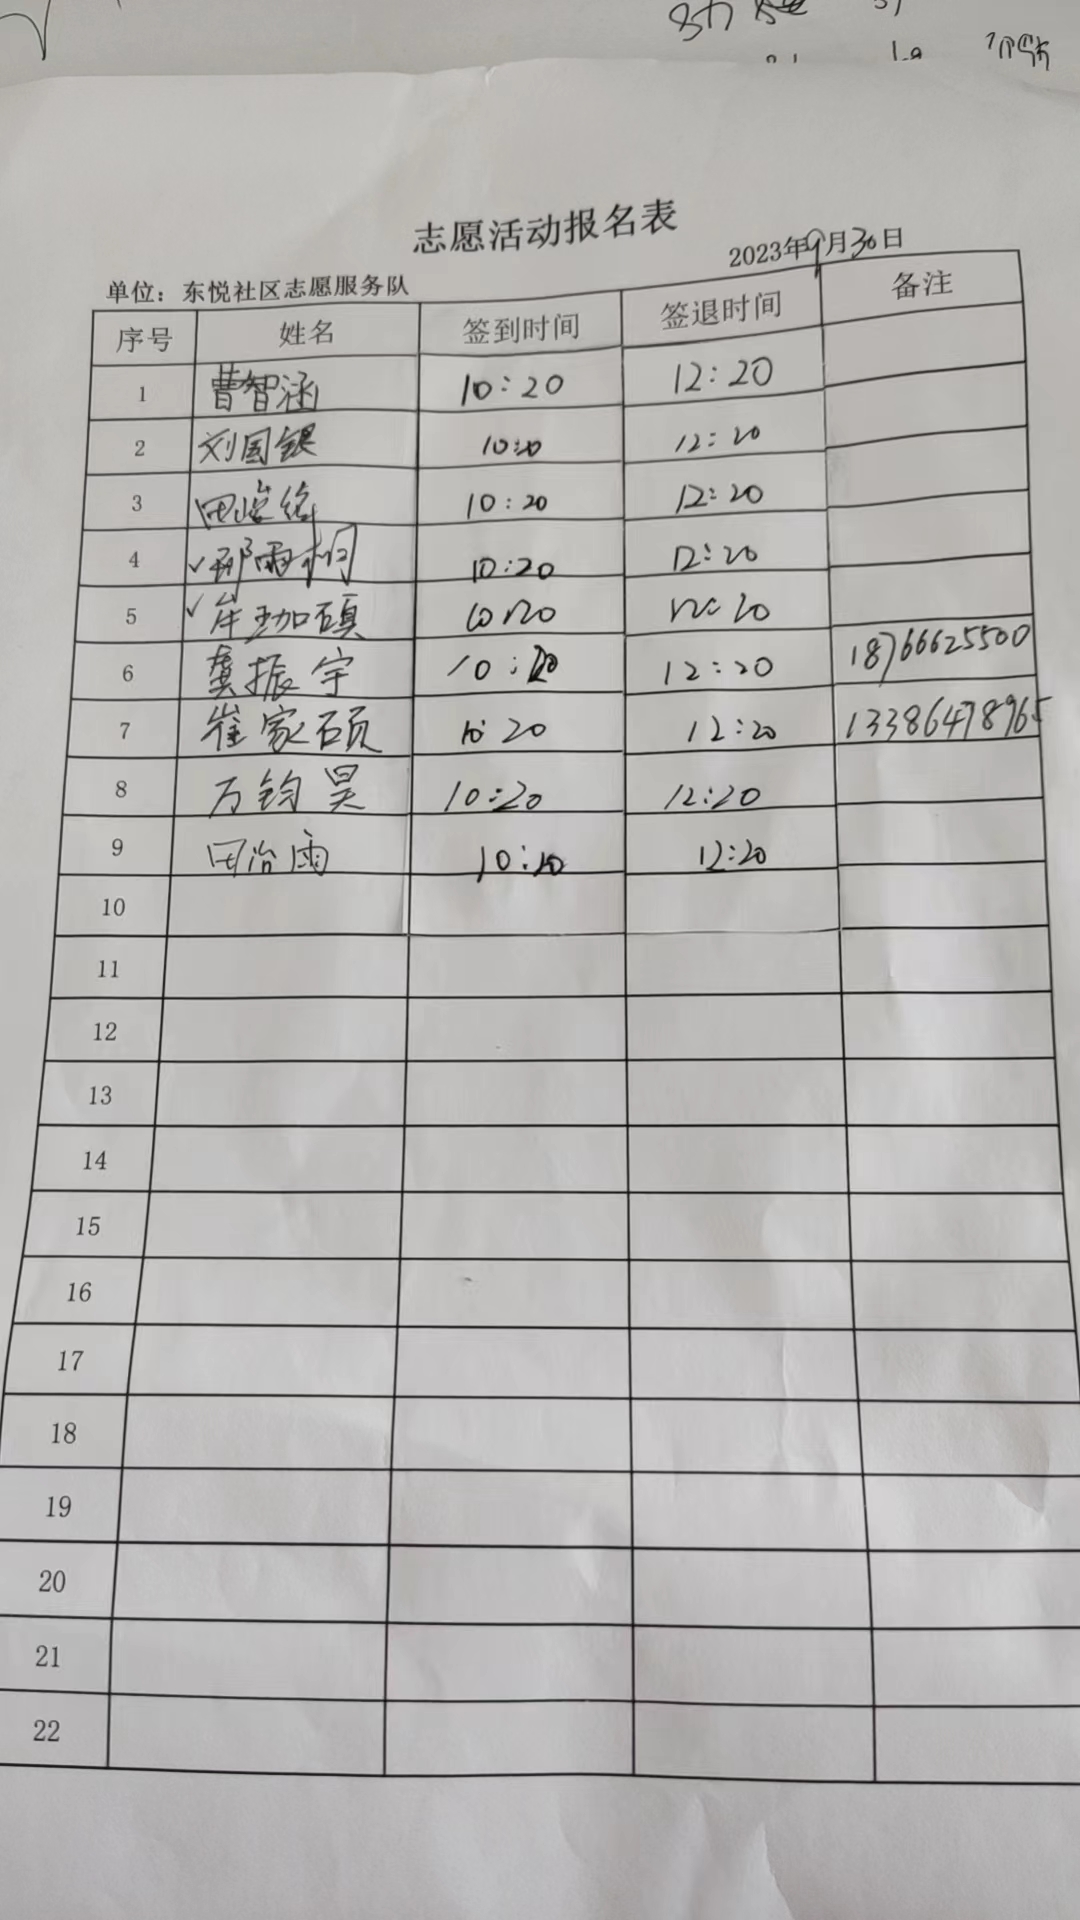 志愿活动报名表
2023年9月30日
单位：东悦社区志愿服务队
序号 姓名 签到时间 签退时间 备注
1 曹智涵 10:20 12:20
2 刘国银 10:20 12:20
3 田 10:20 12:20
4 ✓邢雨桐 10:20 12:20
5 ✓ 10:20 12:20
6 龚振宇 10:20 12:20 18766625500
7 崔家硕 10:20 12:20 13386478965
8 万钧昊 10:20 12:20
9 田治雨 10:20 12:20
10
11
12
13
14
15
16
17
18
19
20
21
22